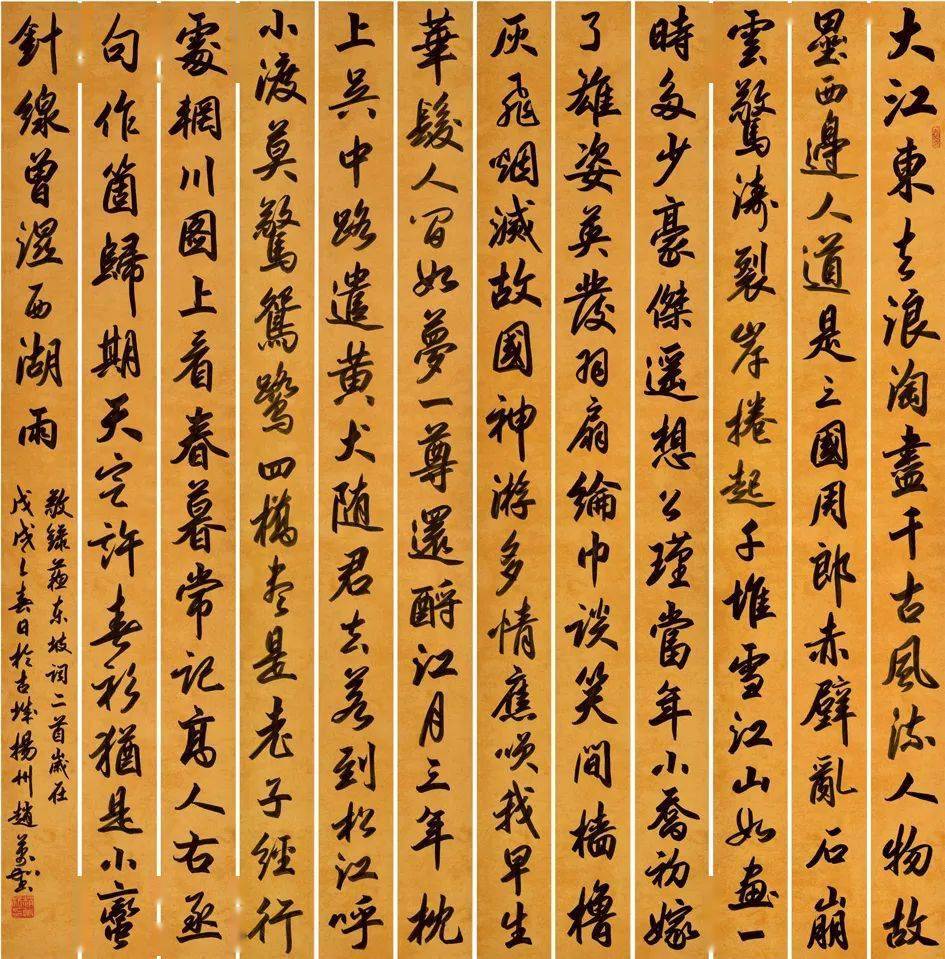 大江東去浪淘盡千古風流人物故
壘西邊人道是三國周郎赤壁亂石崩
雲驚濤裂岸捲起千堆雪江山如畫一
時多少豪傑遥想公瑾當年小喬初嫁
了雄姿英發羽扇綸巾談笑間檣櫓
灰飛烟滅故國神游多情應笑我早生
華髮人間如夢一尊還酹江月三年枕
上吳中路遣黃犬随君去若到松江呼
小渡莫驚鴛鷺四橋盡是老子經行
處輞川圖上看春暮常記高人右丞
句作箇歸期天定許春衫猶是小蠻
針線曾濕西湖雨
敬錄蘇東坡詞二首歲在
戊戌之春日於古城揚州趙